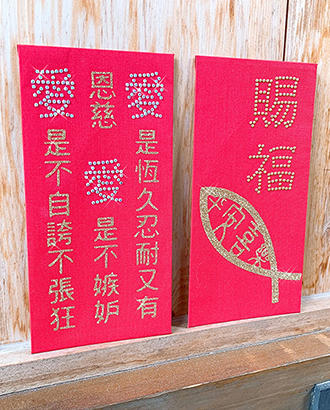 愛是恆久忍耐又有
恩慈愛是不嫉妒
愛是不自誇不張狂
賜福